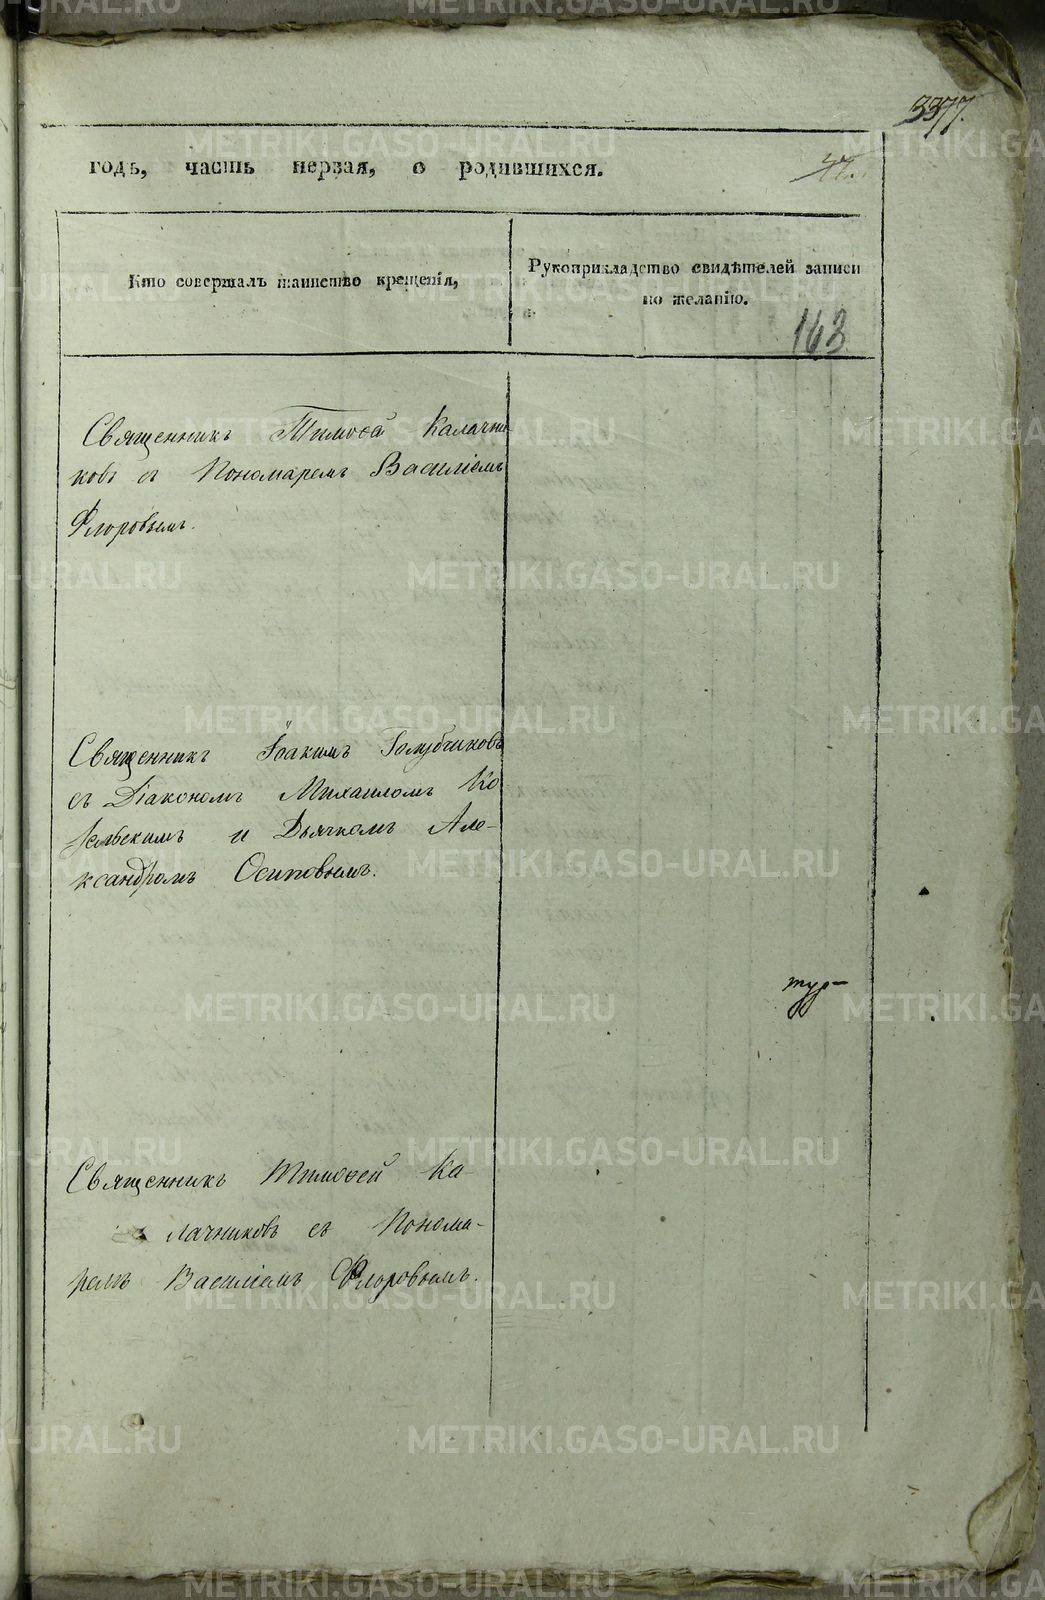 3377.
47.
годъ, часть первая, о родившихся.
Кто совершалъ таинство крещенія,
Рукоприкладство свидѣтелей записи
по желанію.
163
Священникъ Тимофей Калачни
ковъ съ Пономаремъ Василіемъ
Флоровымъ.
Священникъ Іоакимъ Голубчиковъ
съ Діакономъ Михаиломъ Ко
и Дьячкомъ Але-
ксандромъ Осиповымъ.
Священникъ Тимофей Ка-
лачниковъ съ Понома-
ремъ Василіемъ Флоровымъ.
METRIKI.GASO-URAL.RU